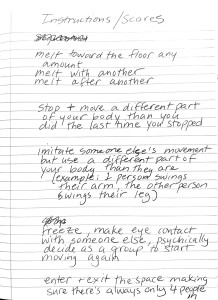 Instructions/Scores
melt toward the floor any
amount
melt with another
melt after another
Stop + move a different part
of your body than you
did the last time you stopped
imitate someone else's movement
but use a different part of
your body than they are
(example: 1 person swings
their arm, the other person
swings their leg)
freeze, make eye contact
with someone else, psychically
decide as a group to start
moving again
enter + exit the space making
sure there's always only 4 people
in